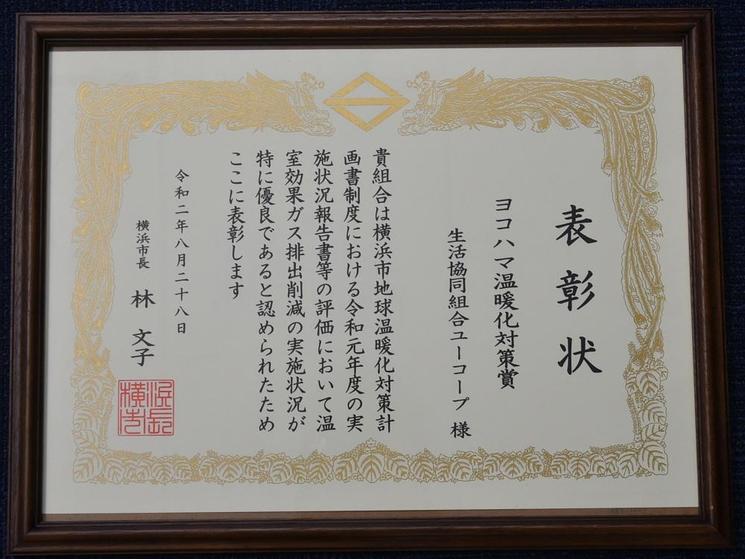 表彰状
ヨコハマ温暖化対策賞
生活協同組合ユーコープ 様
貴組合は横浜市地球温暖化対策計
画書制度における令和元年度の実
施状況報告書等の評価において温
室効果ガス排出削減の実施状況が
特に優良であると認められたため
ここに表彰します
令和二年八月二十八日
横浜市長 林 文子